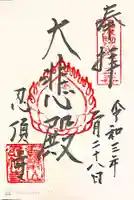 奉拝
令和三年
二月二十八日
大悲殿
忍頂寺